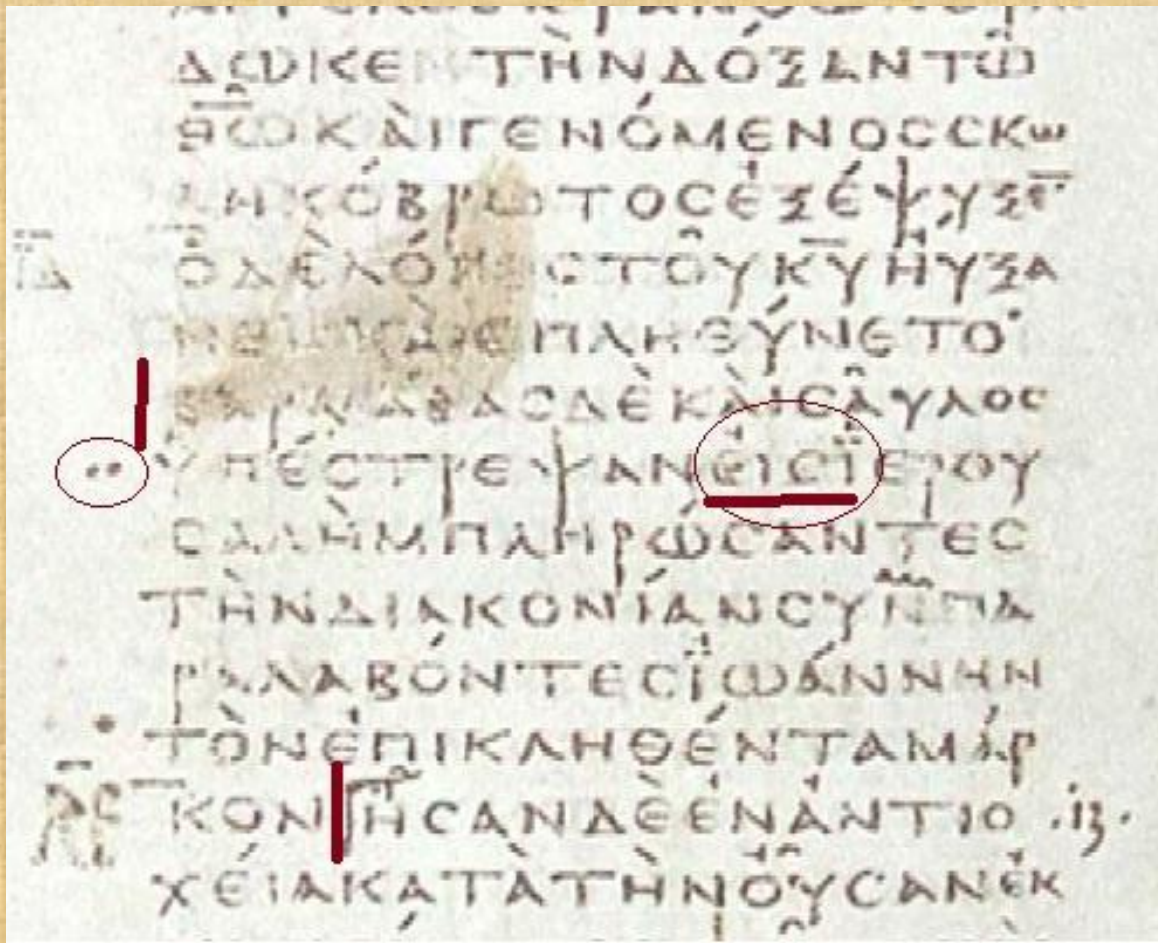 ΔΩΚΕΝ ΤῊΝΔΌΞΑΝΤΩ͂
Θ̅Ω̅ΚΑῚΓΕΝΌΜΕΝΟϹϹΚω
ΛΗΚΌΒΡΩΤΟϹἘΞΈΨΥΞΕ̅
ΙΔ̅ ὉΔῈΛΌΓΟϹΤΟΥ͂Κ̅Υ̅ΗΎΞΑ
ΝΕΝΚΑῚΕΠΛΗΘΎΝΕΤΟ·
ΒΑΡΝΆΒΑϹΔῈΚΑῚϹΑΥ͂ΛΟϹ
·· ὙΠΈϹΤΡΕΨΑΝἘΙϹΪΕΡΟΥ
ϹΑΛῊΜΠΛΗΡΏϹΑΝΤΕϹ
ΤῊΝΔΙΑΚΟΝΊΑΝϹΥΝΠΑ
ΡΑΛΑΒΌΝΤΕϹΪΩΆΝΝΗΝ
ΤῸΝἘΠΙΚΛΗΘΈΝΤΑΜΆΡ
ΚΟΝ ἮϹΑΝΔῈἘΝἈΝΤΙΟ ·ιζ·
ΧΕΊΑΚΑΤᾺΤῊΝΟΥ͂ϹΑΝἘΚ